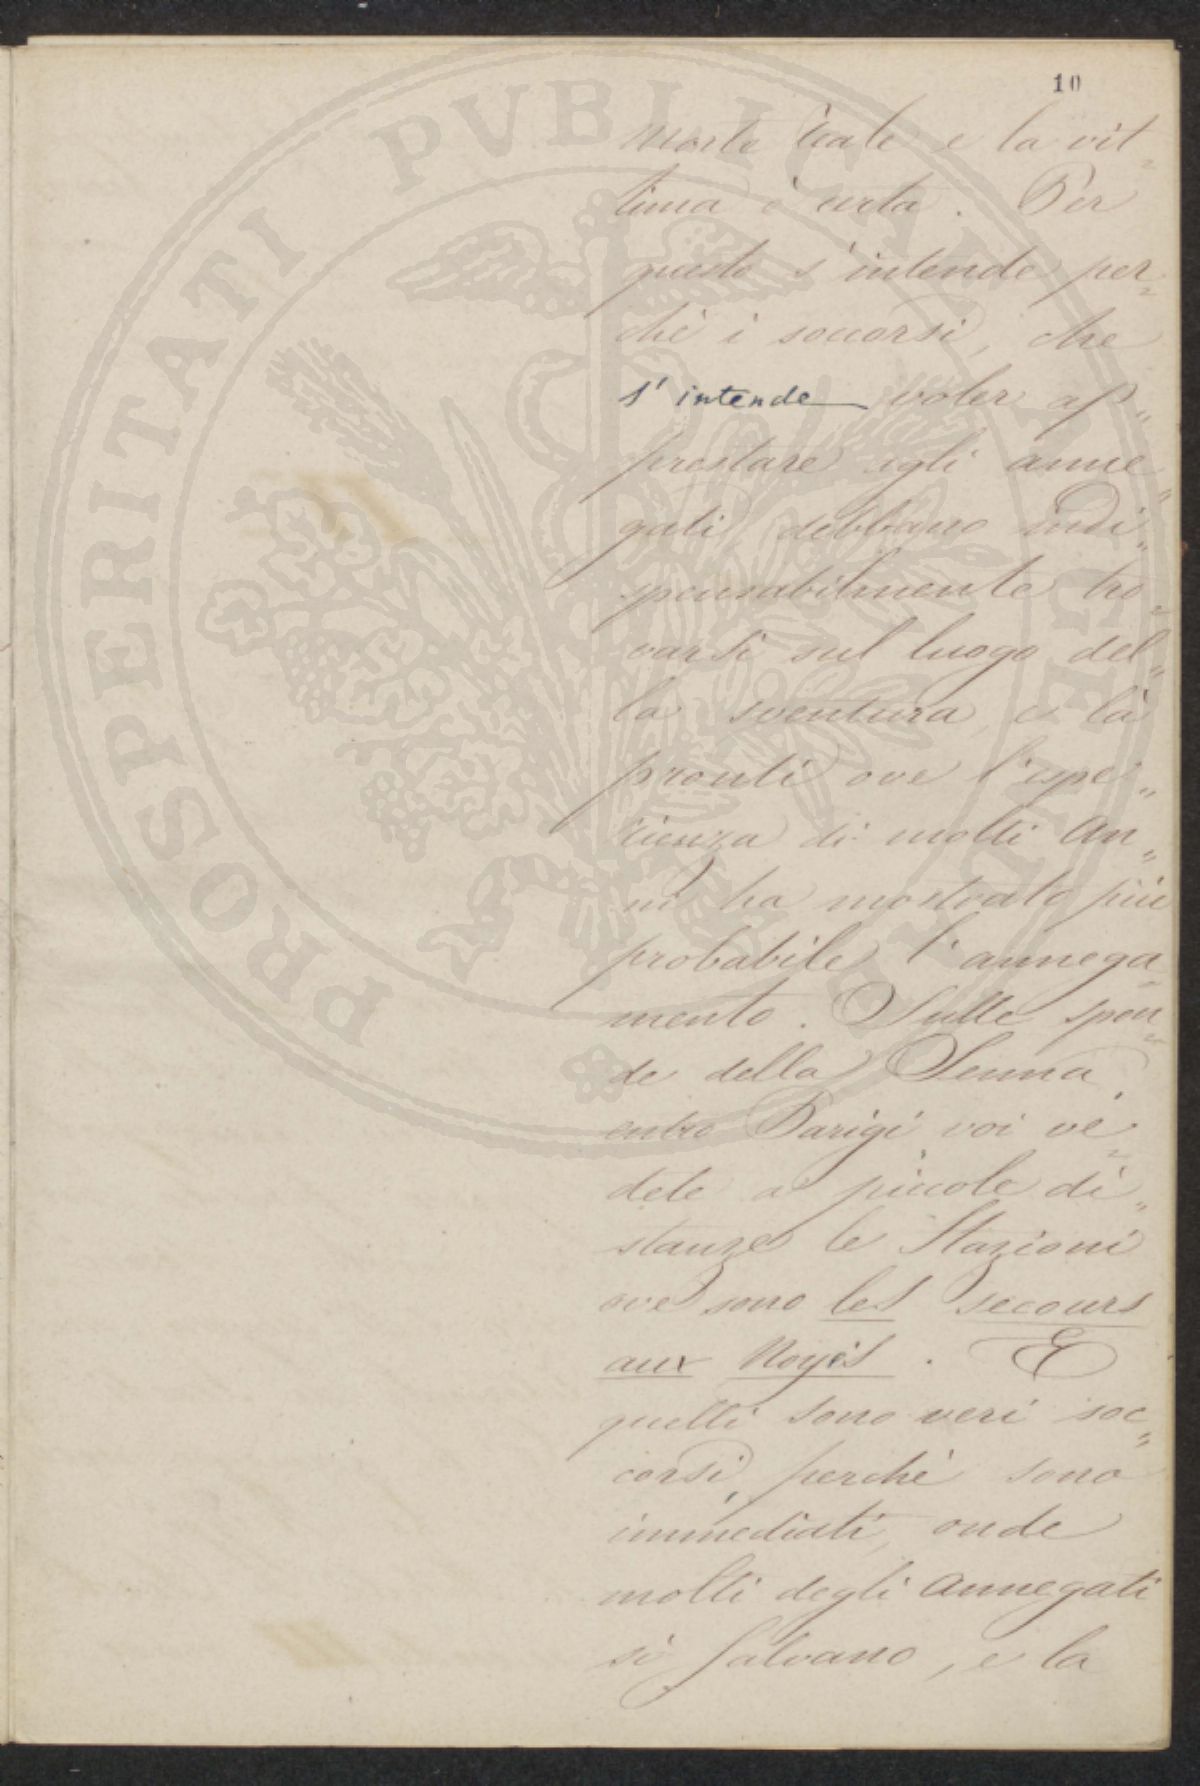 10
PROSPERITATI PVBLICAE
morte reale e la vit=
tima è certa. Per
questo s'intende per=
chè i soccorsi, che
s'intende voler ap=
prestare agli anne=
gati debbano indi=
spensabilmente tro=
varsi sul luogo del=
la sventura, e là
pronti ove l'espe=
rienza di molti an=
ni ha mostrato più
probabile l'annega=
mento. Sulle spon=
de della Senna
entro Parigi voi ve=
dete a piccole di=
stanze le Stazioni
ove sono les secours
aux Noyés. E
quelli sono veri soc=
corsi, perchè sono
immediati, onde
molti degli annegati
si salvano, e la